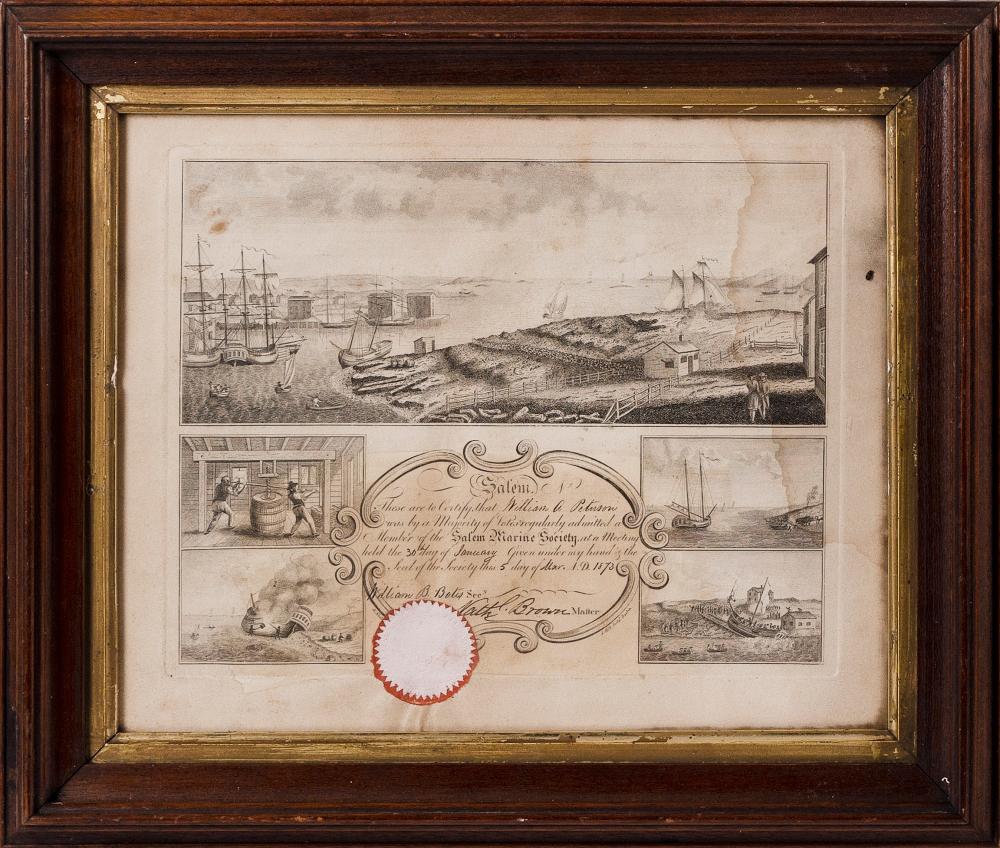 Salem, No
These are to Certify, that William C Peterson
was by a Majority of Votes regularly admitted a
Member of the Salem Marine Society, at a Meeting
held the 30th day of January Given under my hand & the
Seal of the Society this 5 day of Mar. A.D. 1873
William B. Bates Secy
Nathl. Brown Master